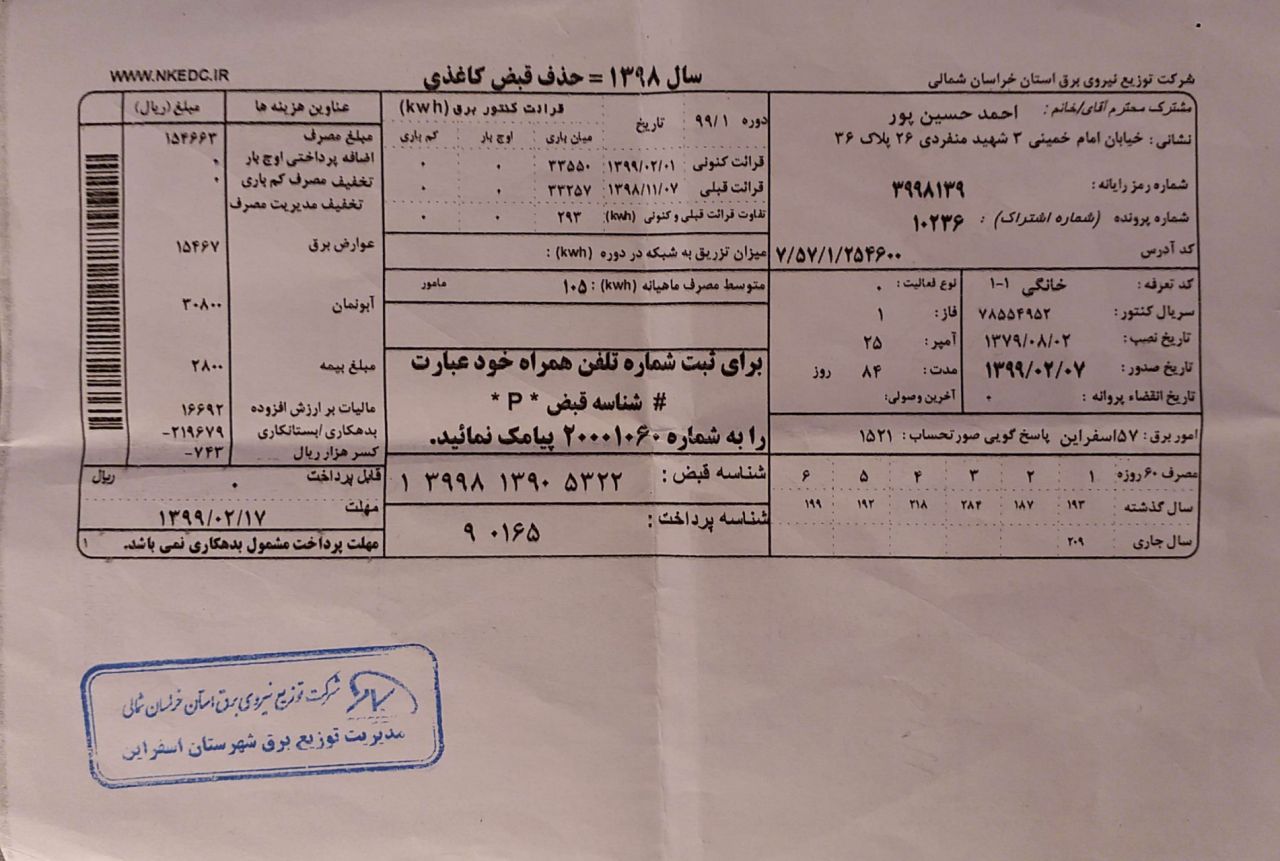 شرکت توزیع نیروی برق استان خراسان شمالی
سال ۱۳۹۸ = حذف قبض کاغذی
WWW.NKEDC.IR
مشترک محترم آقای/خانم : احمد حسین پور
نشانی : خیابان امام خمینی ۳ شهید منفردی ۲۶ پلاک ۳۶
شماره رمز رایانه : ۳۹۹۸۱۳۹
شماره پرونده (شماره اشتراک) : ۱۰۲۳۶
کد آدرس ۷/۵۷/۱/۲۵۴۶۰۰
کد تعرفه : خانگی ۱-۱
سریال کنتور : ۷۸۵۵۴۹۵۲
تاریخ نصب: ۱۳۷۹/۰۸/۰۲
تاریخ صدور: ۱۳۹۹/۰۲/۰۷
تاریخ انقضاء پروانه : ۰
نوع فعالیت : ۰
فاز: ۱
آمپر: ۲۵
مدت: ۸۴ روز
آخرین وصولی:
امور برق : ۵۷اسفراین پاسخ گویی صورتحساب : ۱۵۲۱
مصرف ۶۰ روزه ۱ ۲ ۳ ۴ ۵ ۶
سال گذشته ۱۹۳ ۱۸۷ ۲۸۴ ۲۱۸ ۱۹۲ ۱۹۹
سال جاری ۲۰۹
دوره ۹۹/۱ تاریخ قرائت کنتور برق (kwh)
میان باری اوج بار کم باری
قرائت کنونی ۱۳۹۹/۰۲/۰۱ ۳۳۵۵۰ ۰ ۰
قرائت قبلی ۱۳۹۸/۱۱/۰۷ ۳۳۲۵۷ ۰ ۰
تفاوت قرائت قبلی و کنونی (kwh) ۲۹۳ ۰ ۰
میزان تزریق به شبکه در دوره (kwh) :
متوسط مصرف ماهیانه (kwh) : ۱۰۵ مامور
برای ثبت شماره تلفن همراه خود عبارت
# شناسه قبض * P *
را به شماره ۲۰۰۰۱۰۶۰ پیامک نمائید.
شناسه قبض : ۱ ۳۹۹۸ ۱۳۹۰ ۵۳۲۲
شناسه پرداخت : ۹۰۱۶۵
عناوین هزینه ها مبلغ (ریال)
مبلغ مصرف ۱۵۴۶۶۳
اضافه پرداختی اوج بار ۰
تخفیف مصرف کم باری ۰
تخفیف مدیریت مصرف
عوارض برق ۱۵۴۶۷
آبونمان ۳۰۸۰۰
مبلغ بیمه ۲۸۰۰
مالیات بر ارزش افزوده ۱۶۶۹۲
بدهکاری /بستانکاری ۲۱۹۶۷۹-
کسر هزار ریال ۷۴۳-
قابل پرداخت ۰ ریال
مهلت ۱۳۹۹/۰۲/۱۷
مهلت پرداخت مشمول بدهکاری نمی باشد. ۱
شرکت توزیع نیروی برق استان خراسان شمالی
مدیریت توزیع برق شهرستان اسفراین